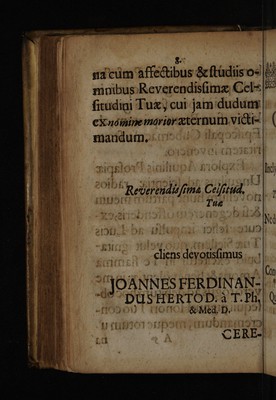 8.
na cum affectibus & studiis o-
mnibus Reverendissimæ Cel-
situdini Tuæ, cui jam dudum
ex nomine morior æternum victi-
mandum.
Reverendissimæ Celsitud.
Tuæ
cliens devotissimus
JOANNES FERDINAN-
DUS HERTOD. à T. Ph.
& Med. D.
CERE-